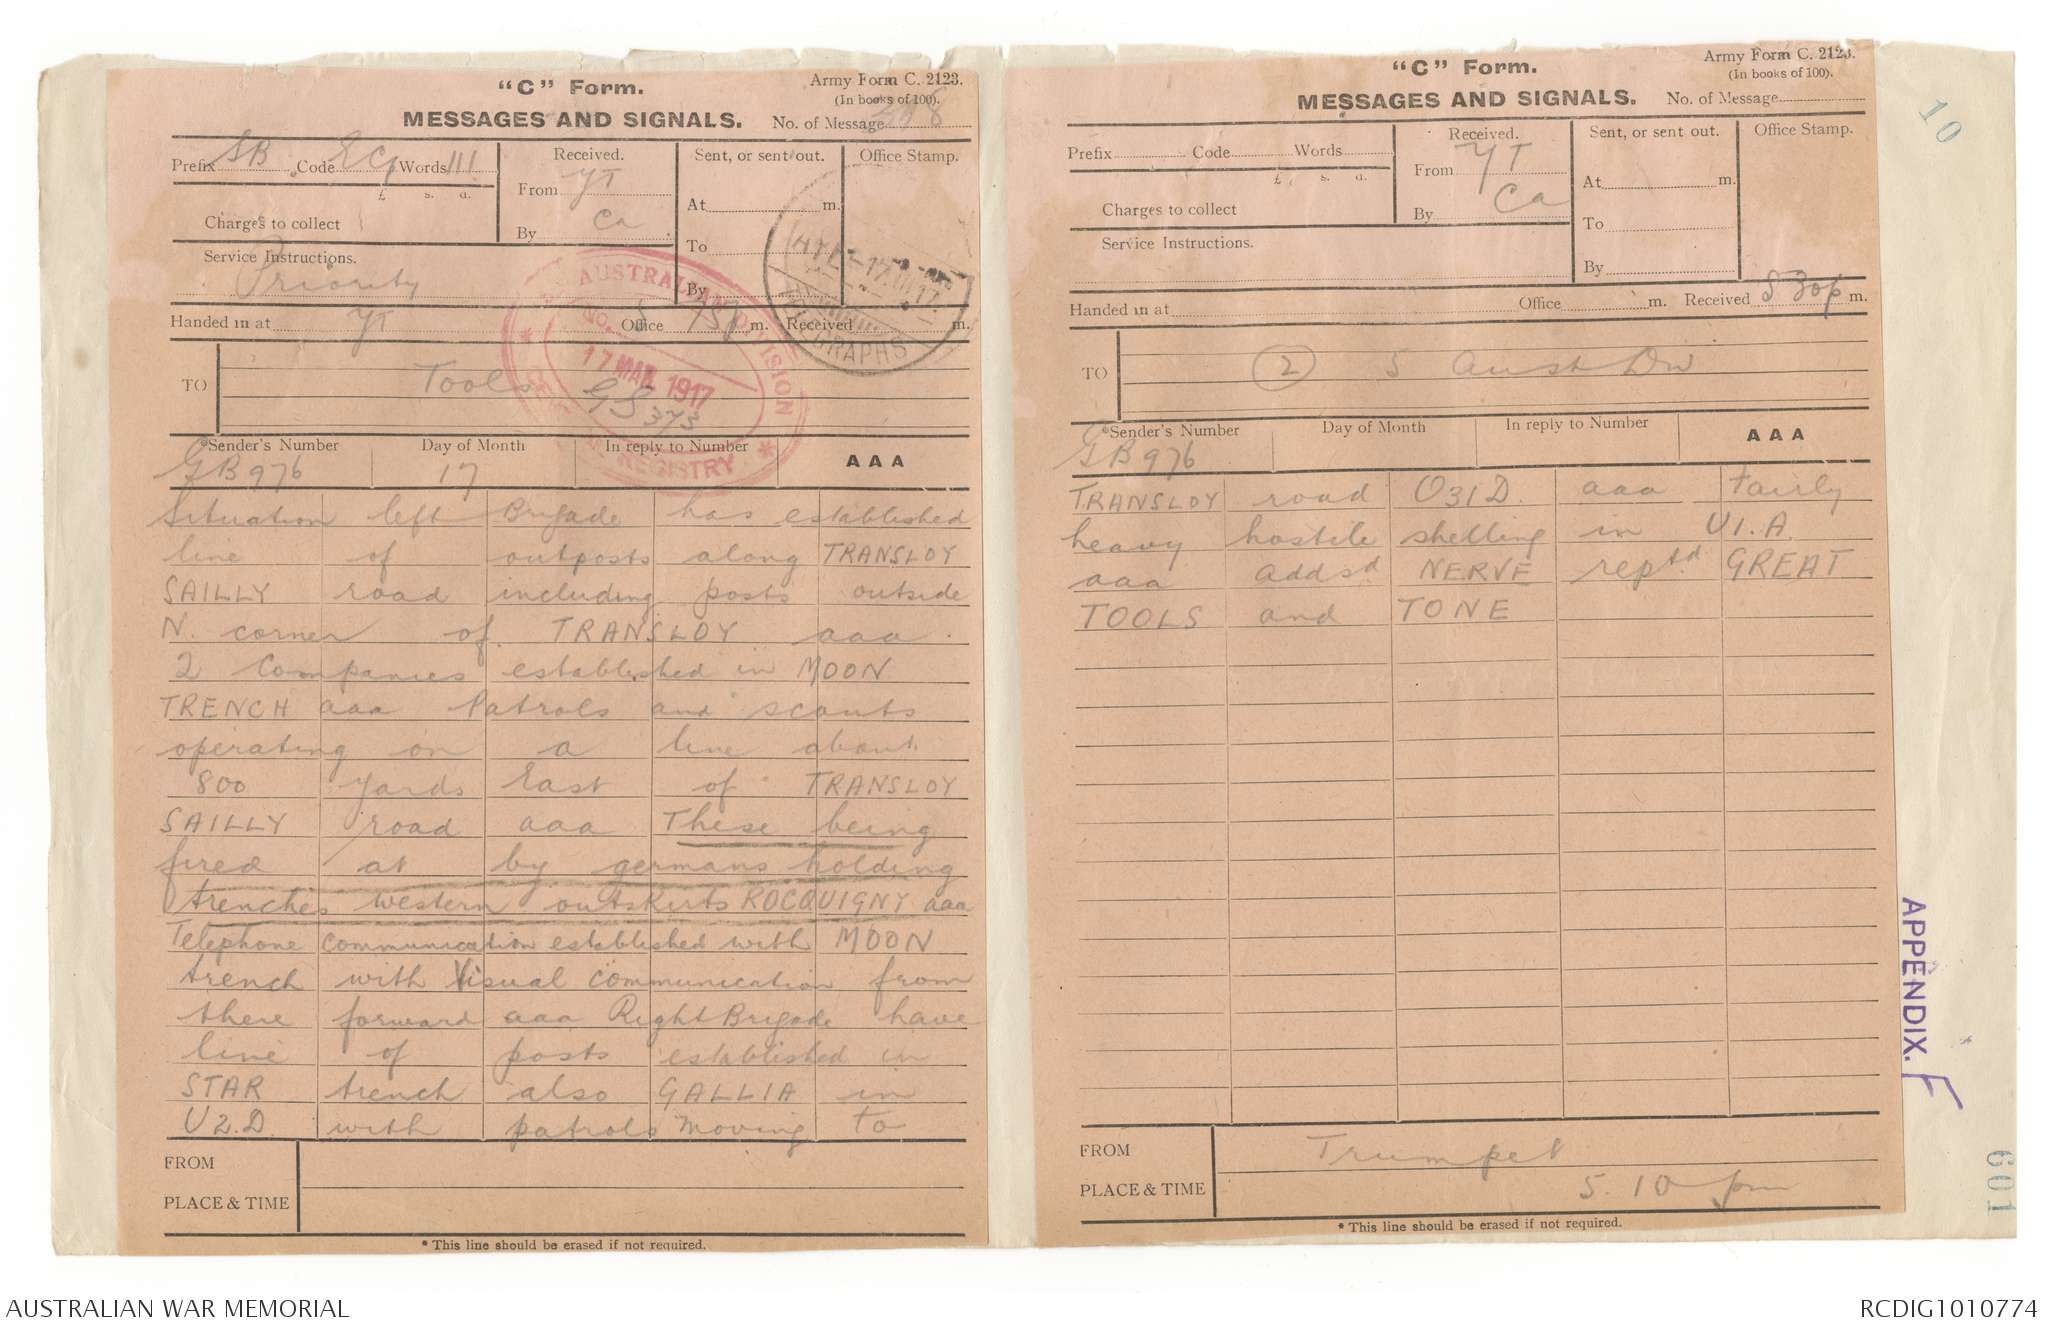 "C" Form.
Army Form C. 2123.
(In books of 100).
MESSAGES AND SIGNALS.
No. of Message
Prefix SB Code Words 111
£ s. d.
Charges to collect
Service Instructions.
Priority
Received.
From YT
By Ca
Sent, or sent out.
At m.
To
By
Office Stamp.
TELEGRAPHS
Handed in at YT Office m. Received m.
AUSTRALIAN DIVISION
No.
17 MAR 1917
REGISTRY
TO Tools
GS 373
*Sender's Number
Day of Month
In reply to Number
AAA
GB976
17
Situation left Brigade has established
line of outposts along TRANSLOY
SAILLY road including posts outside
N. corner of TRANSLOY aaa
2 Companies established in MOON
TRENCH aaa Patrols and scouts
operating on a line about
800 yards East of TRANSLOY
SAILLY road aaa These being
fired at by germans holding
trenches western outskirts ROCQUIGNY aaa
Telephone communication established with MOON
trench with Visual communication from
there forward aaa Right Brigade have
line of posts established in
STAR trench also GALLIA in
U2.D. with patrols moving to
FROM
PLACE & TIME
* This line should be erased if not required.
"C" Form.
Army Form C. 2123.
(In books of 100).
MESSAGES AND SIGNALS.
No. of Message
Prefix Code Words
£ s. d.
Charges to collect
Service Instructions.
Received.
From YT
By Ca
Sent, or sent out.
At m.
To
By
Office Stamp.
Handed in at Office m. Received 5 30p m.
TO (2) 5 Aust Div
*Sender's Number
Day of Month
In reply to Number
AAA
GB976
TRANSLOY road O31D. aaa Fairly
heavy hostile shelling in U1.A.
aaa addsd NERVE reptd GREAT
TOOLS and TONE
FROM Trumpet
PLACE & TIME 5.10 pm
* This line should be erased if not required.
10
APPENDIX. F
601
AUSTRALIAN WAR MEMORIAL
RCDIG1010774